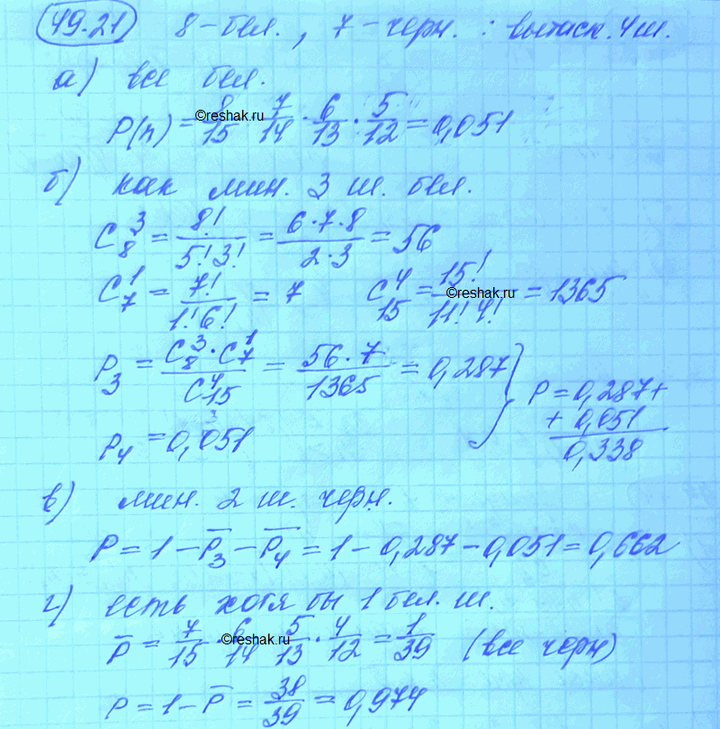 49.21 8-бел., 7-черн. : вытаск. 4 ш.
а) все бел.
P(n) = 8/15 · 7/14 · 6/13 · 5/12 = 0,051
©reshak.ru
б) как мин. 3 ш. бел.
C₈³ = 8!/5!3! = 6·7·8/2·3 = 56
C₇¹ = 7!/1!6! = 7 C₁₅⁴ = 15!/11!4! = 1365
©reshak.ru
P₃ = C₈³·C₇¹/C₁₅⁴ = 56·7/1365 = 0,287 } P = 0,287+
P₄ = 0,051 + 0,051
0,338
в) мин. 2 ш. черн.
P = 1 - P̅₃ - P̅₄ = 1 - 0,287 - 0,051 = 0,662
г) есть хотя бы 1 бел. ш.
P̅ = 7/15 · 6/14 · 5/13 · 4/12 = 1/39 (все черн)
©reshak.ru
P = 1 - P̅ = 38/39 = 0,974